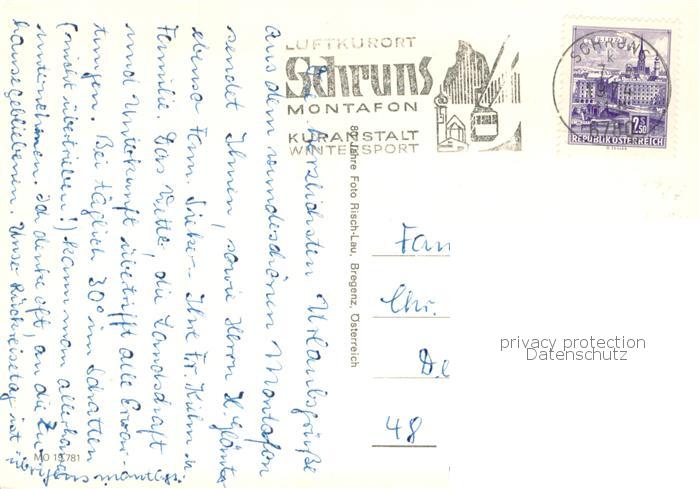 LUFTKURORT
Schruns
MONTAFON
KURANSTALT
WINTERSPORT
SCHRUNS
k
REPUBLIK ÖSTERREICH
2.50
Die herzlichsten Urlaubsgrüße
aus dem wunderschönen Montafon
sendet Ihnen, sowie Herrn
ebenso Fam. Ihre Fr. Kühn u.
Familie. Das Wetter, die Landschaft
und Unterkunft übertrifft alle Erwar-
tungen. Bei täglich 30° im Schatten
(nicht übertrieben!) kann man allerhand
unternehmen. Ich denke oft, an die Zu-
hausegebliebenen. Unser Rückreisetag ist
übrigens montags.
80 Jahre Foto Risch-Lau, Bregenz, Österreich
Fam
Chr.
De
48
privacy protection
Datenschutz
MO 19 781